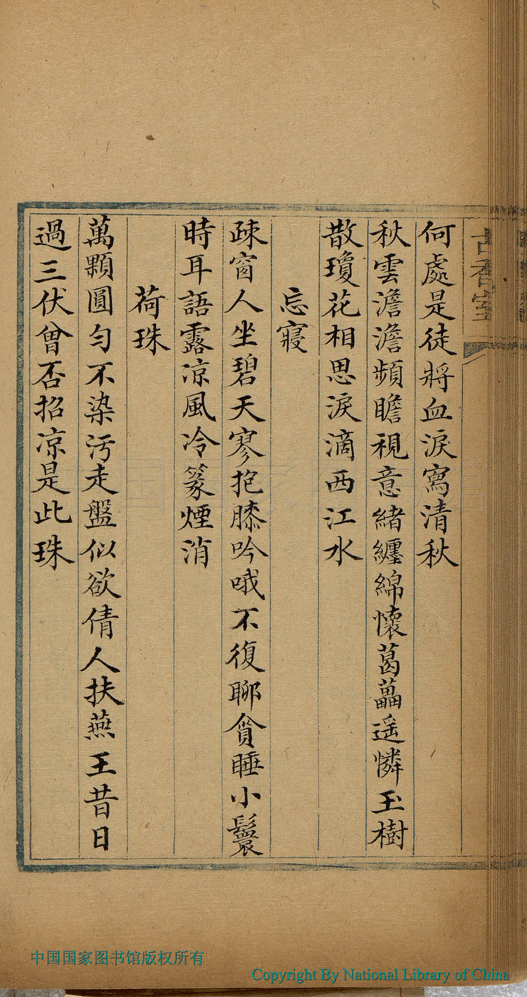 古香室
何處是徒將血淚寫清秋
秋雲澹澹頻瞻視意緒纏綿懷葛藟遥憐玉樹
散瓊花相思淚滴西江水
忘寢
疎窗人坐碧天寥抱膝吟哦不復聊貪睡小鬟
時耳語露涼風冷篆煙消
荷珠
萬顆圓勻不染汚走盤似欲倩人扶燕王昔日
過三伏曾否招凉是此珠
中国国家图书馆版权所有
Copyright By National Library of China